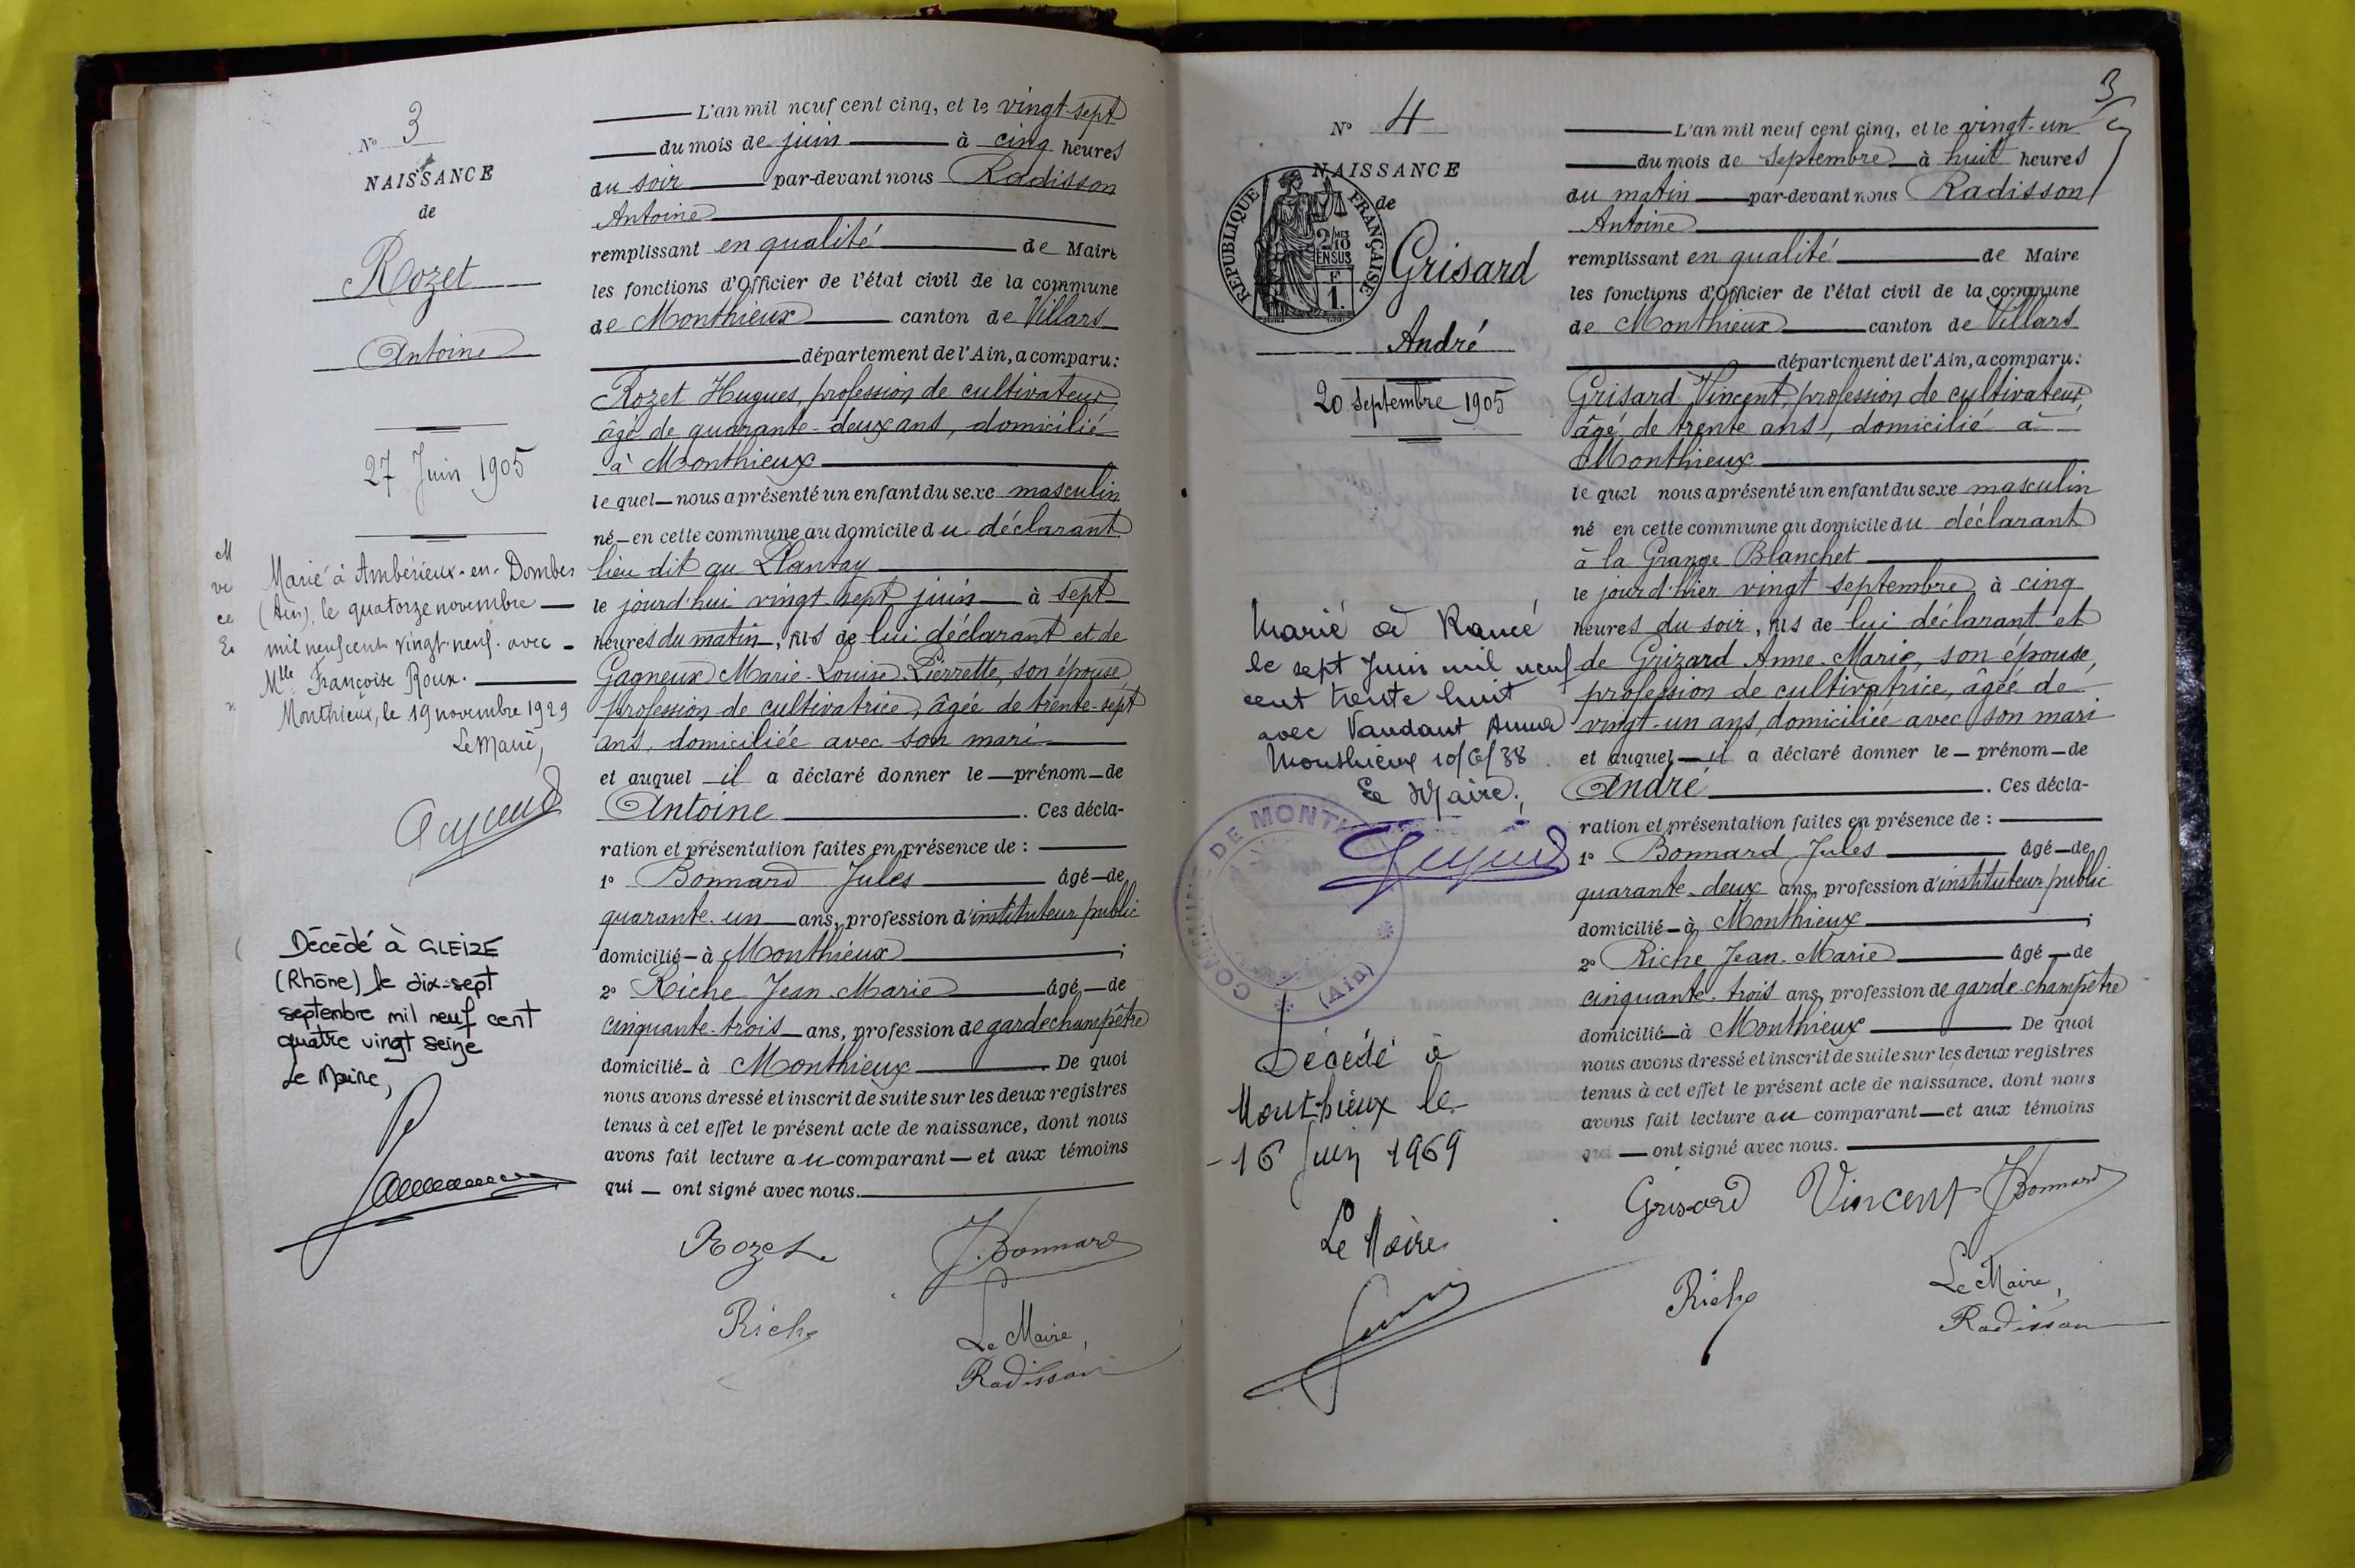 N° 3
NAISSANCE
de
Rozet
Antoine
27 Juin 1905
Marié à Ambérieux-en-Dombes
(Ain), le quatorze novembre
mil neuf cent vingt-neuf avec
Mlle Françoise Roux.
Monthieux, le 19 novembre 1929
Le Maire,
Décédé à GLEIZE
(Rhône) le dix-sept
septembre mil neuf cent
quatre vingt seize
Le Maire,
L'an mil neuf cent cinq, et le vingt-sept
du mois de juin à cinq heures
du soir par-devant nous Radisson
Antoine
remplissant en qualité de Maire
les fonctions d'Officier de l'état civil de la commune
de Monthieux canton de Villars
département de l'Ain, a comparu:
Rozet Hugues, profession de cultivateur,
âgé de quarante-deux ans, domicilié
à Monthieux
lequel nous a présenté un enfant du sexe masculin
né en cette commune au domicile du déclarant
lieu dit au Plantay
le jourd'hui vingt-sept juin à sept
heures du matin, fils de lui déclarant et de
Gagneux Marie-Louise Pierrette, son épouse
profession de cultivatrice, âgée de trente-sept
ans, domiciliée avec son mari
et auquel il a déclaré donner le prénom de
Antoine. Ces décla-
ration et présentation faites en présence de :
1° Bonnard Jules âgé de
quarante-un ans, profession d'instituteur public
domicilié à Monthieux ;
2° Riche Jean-Marie âgé de
cinquante-trois ans, profession de garde champêtre
domicilié à Monthieux. De quoi
nous avons dressé et inscrit de suite sur les deux registres
tenus à cet effet le présent acte de naissance, dont nous
avons fait lecture au comparant et aux témoins
qui ont signé avec nous.
Rozet J. Bonnard
Riche Le Maire,
Radisson
3
N° 4
NAISSANCE
de
REPUBLIQUE FRANÇAISE
2/10 MES
EN SUS
F
1.
Grisard
André
20 septembre 1905
Marié à Rancé
le sept Juin mil neuf
cent trente huit
avec Vaudant Anna
Monthieux 10/6/38
Le Maire,
COMMUNE DE MONTHIEUX (Ain)
Décédé à
Monthieux le
16 Juin 1969
Le Maire
L'an mil neuf cent cinq, et le vingt-un
du mois de septembre à huit heures
du matin par-devant nous Radisson
Antoine
remplissant en qualité de Maire
les fonctions d'Officier de l'état civil de la commune
de Monthieux canton de Villars
département de l'Ain, a comparu:
Grisard Vincent, profession de cultivateur,
âgé de trente ans, domicilié à
Monthieux
lequel nous a présenté un enfant du sexe masculin
né en cette commune au domicile du déclarant
à la Grange Blanchet
le jour d'hier vingt septembre à cinq
heures du soir, fils de lui déclarant et
de Grizard Anne-Marie, son épouse,
profession de cultivatrice, âgée de
vingt-un ans, domiciliée avec son mari
et auquel il a déclaré donner le prénom de
André. Ces décla-
ration et présentation faites en présence de :
1° Bonnard Jules âgé de
quarante-deux ans, profession d'instituteur public
domicilié à Monthieux ;
2° Riche Jean-Marie âgé de
cinquante-trois ans, profession de garde-champêtre
domicilié à Monthieux. De quoi
nous avons dressé et inscrit de suite sur les deux registres
tenus à cet effet le présent acte de naissance, dont nous
avons fait lecture au comparant et aux témoins
qui ont signé avec nous.
Grisard Vincent J Bonnard
Riche Le Maire,
Radisson